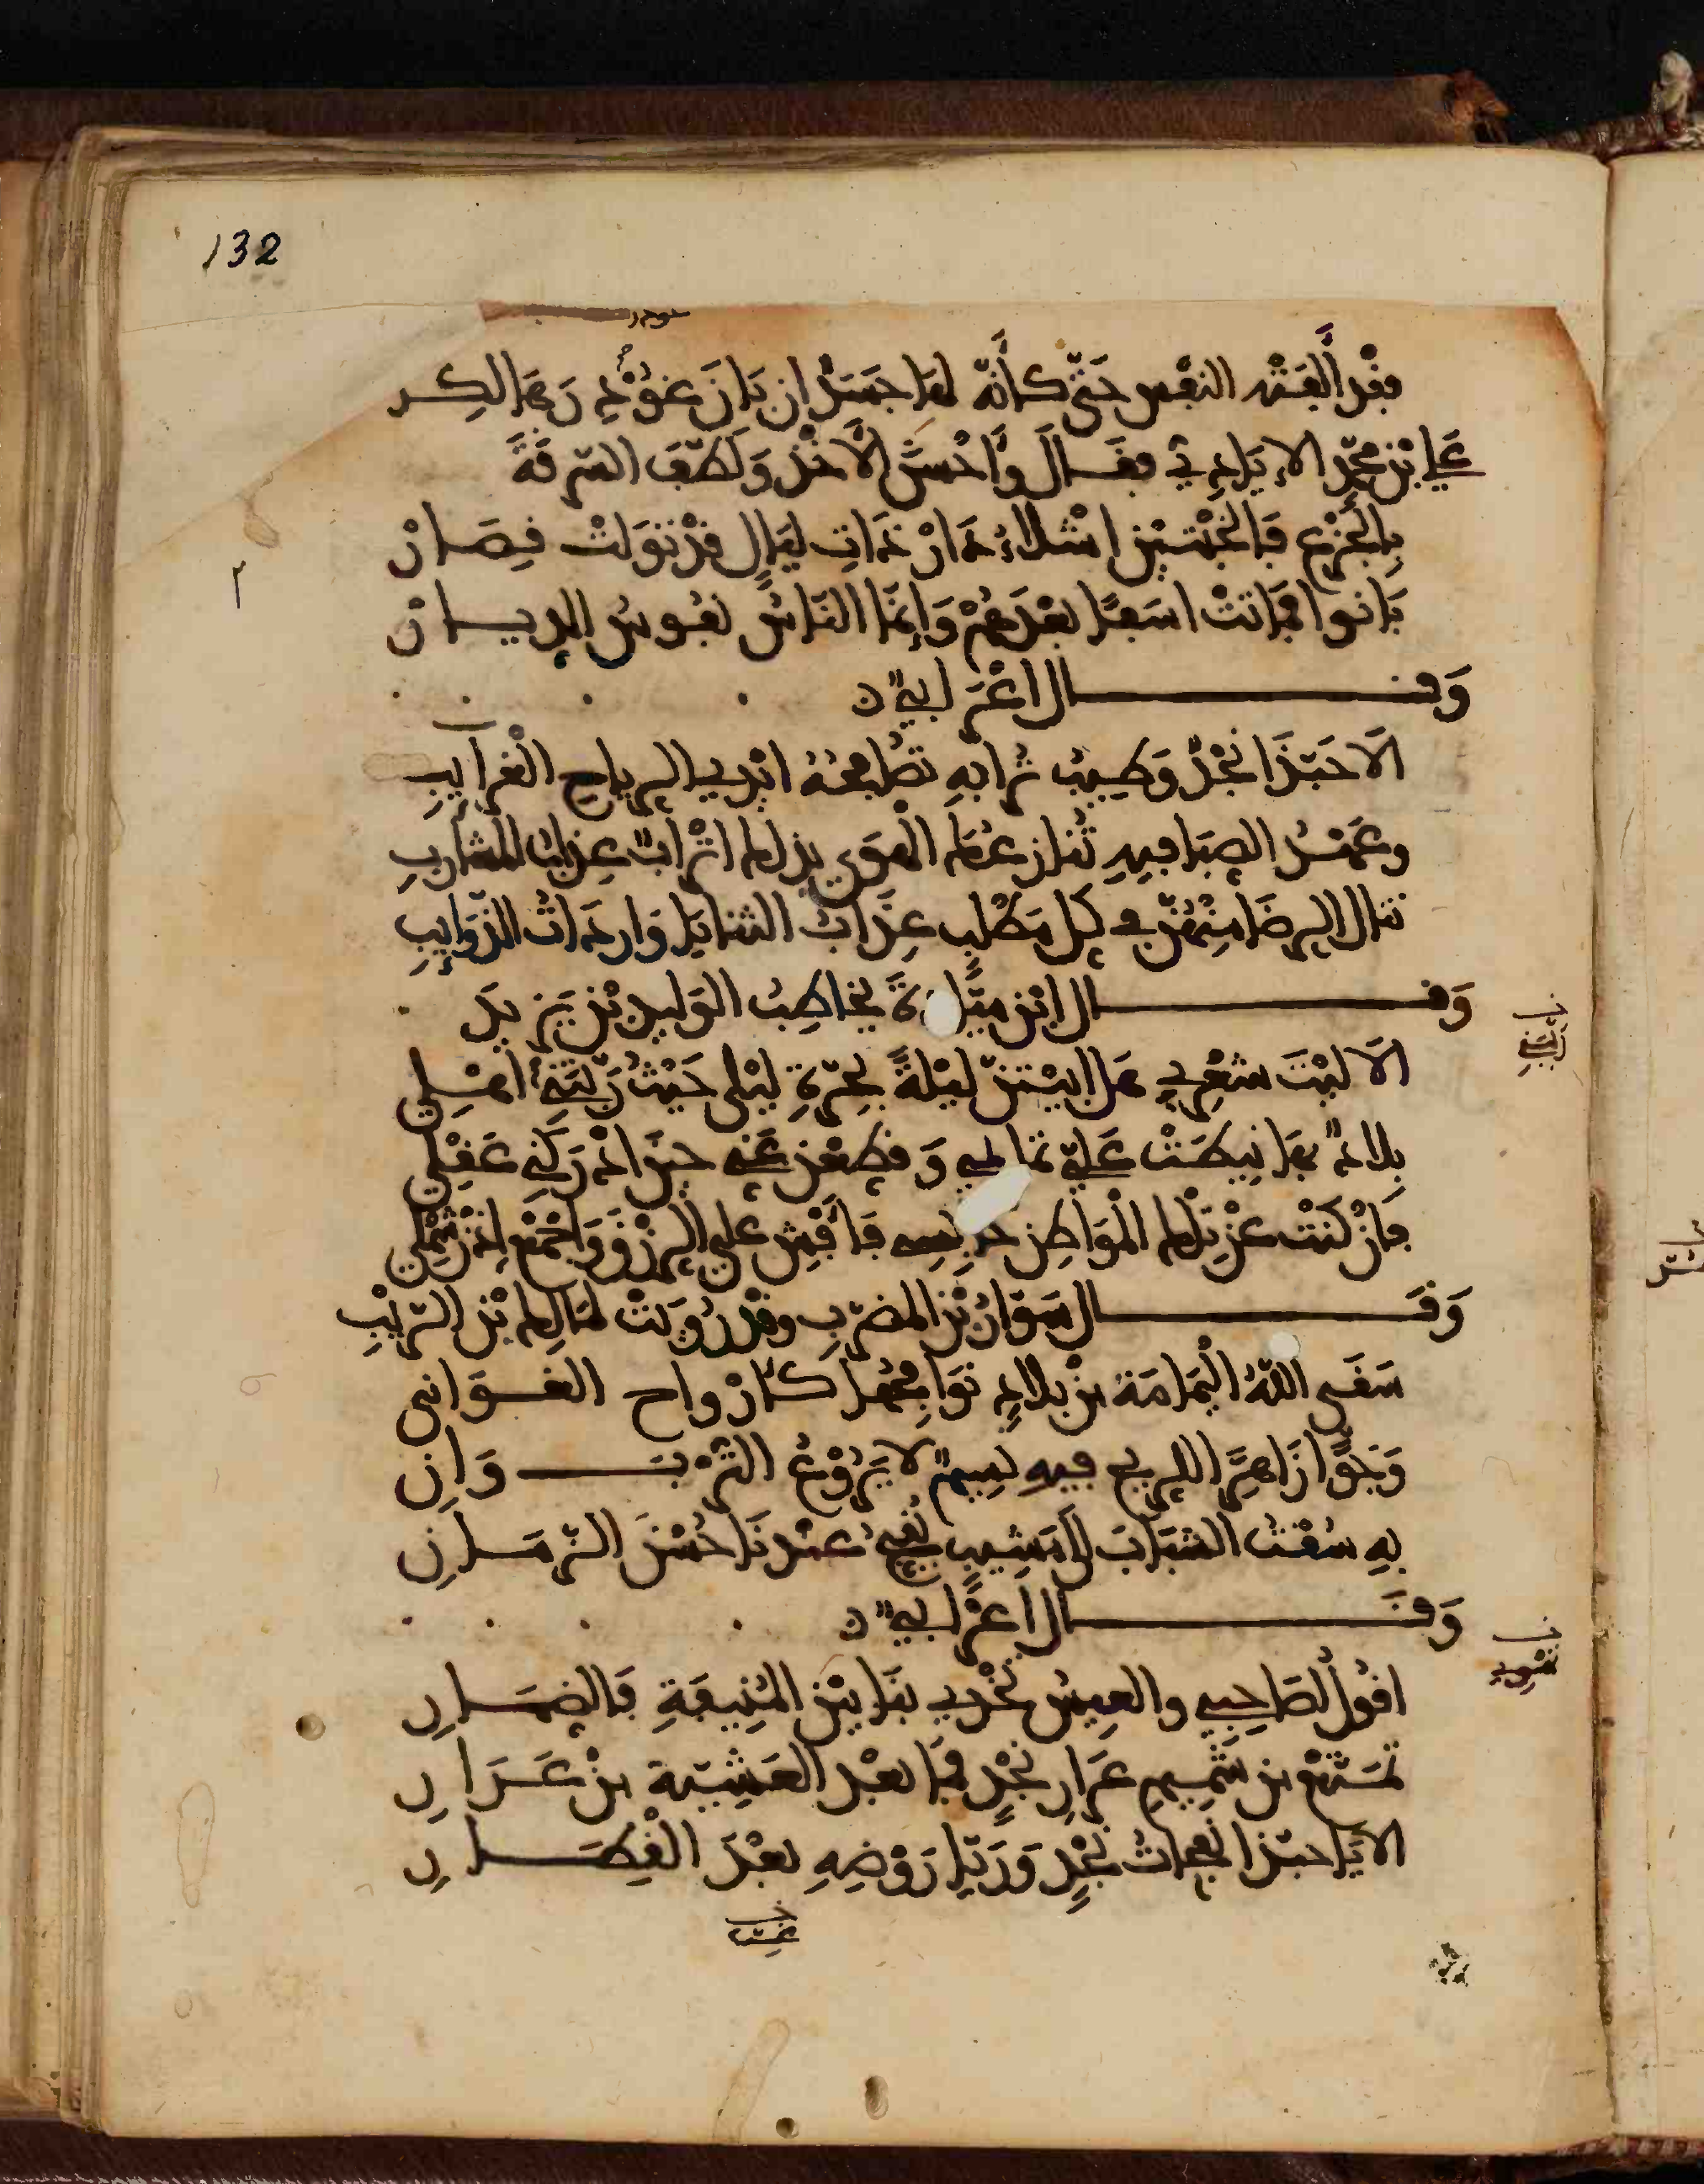 132
فقد ألفته النفس حتى كأنه لها جسد ان بان غودر هالكا
علي بن محمد الإيادي فقال وأحسن الأخذ ولطف السرقة
بالجزع فالخبتين اشلاء دار ذات ليال قد تولت قصار
بانوا فماتت اسفا بعدهم وإنما الناس نفوس الديار
وقال اعرابي
الا حبذا نجد وطيب ترابه تصافحه ايدي الرياح الغرايب
وعهد الصبا فيه تنازعك الهوى بذلك اتراب عذاب المشارب
تنال الرضا منهن في كل مطلب عذاب الثنايا واردات الذوايب
وقال ابن ميادة يخاطب الوليد بن يزيد
الا ليت شعري هل ابيتن ليلة بحرة ليلى حيث ربتني اهلي
ربتني
بلاد بها نيطت علي تمايمي وقطعن عني حين ادركني عقلي
فان كنت عن تلك المواطن حابسي فأفش علي الرزق واجمع اذن شملي
وقال سوار بن المضرب وقد رويت لمالك بن الريب
سقى الله اليمامة من بلاد نوافحها كأرواح الغواني
وجو زاهر للريح فيه نسيم لا يروع الترب وان
به سقت الشباب الى مشيب يقبح عندنا حسن الزمان
وقال اعرابي
اقول لصاحبي والعيس تخدي بنا بين المنيفة فالضمار
تهوي
تمتع من شميم عرار نجد فما بعد العشية من عرار
الا يا حبذا نفحات نجد وريا روضه بعد القطار
غب